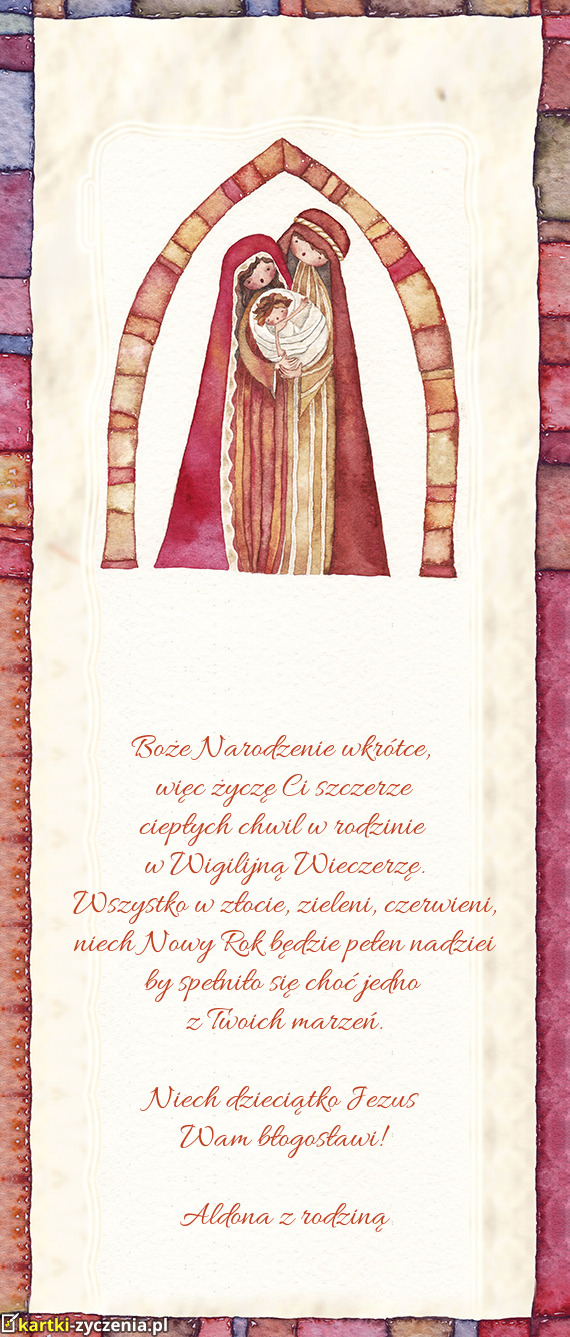 Boże Narodzenie wkrótce,
więc życzę Ci szczerze
ciepłych chwil w rodzinie
w Wigilijną Wieczerzę.
Wszystko w złocie, zieleni, czerwieni,
niech Nowy Rok będzie pełen nadziei
by spełniło się choć jedno
z Twoich marzeń.
Niech dzieciątko Jezus
Wam błogosławi!
Aldona z rodziną
kartki-zyczenia.pl